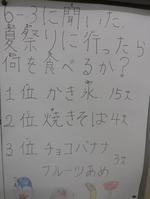 6-3に聞いた
夏祭りに行ったら
何を食べるか?
1位 かき氷 15人
2位 焼きそば 4人
3位 チョコバナナ
フルーツあめ 3人